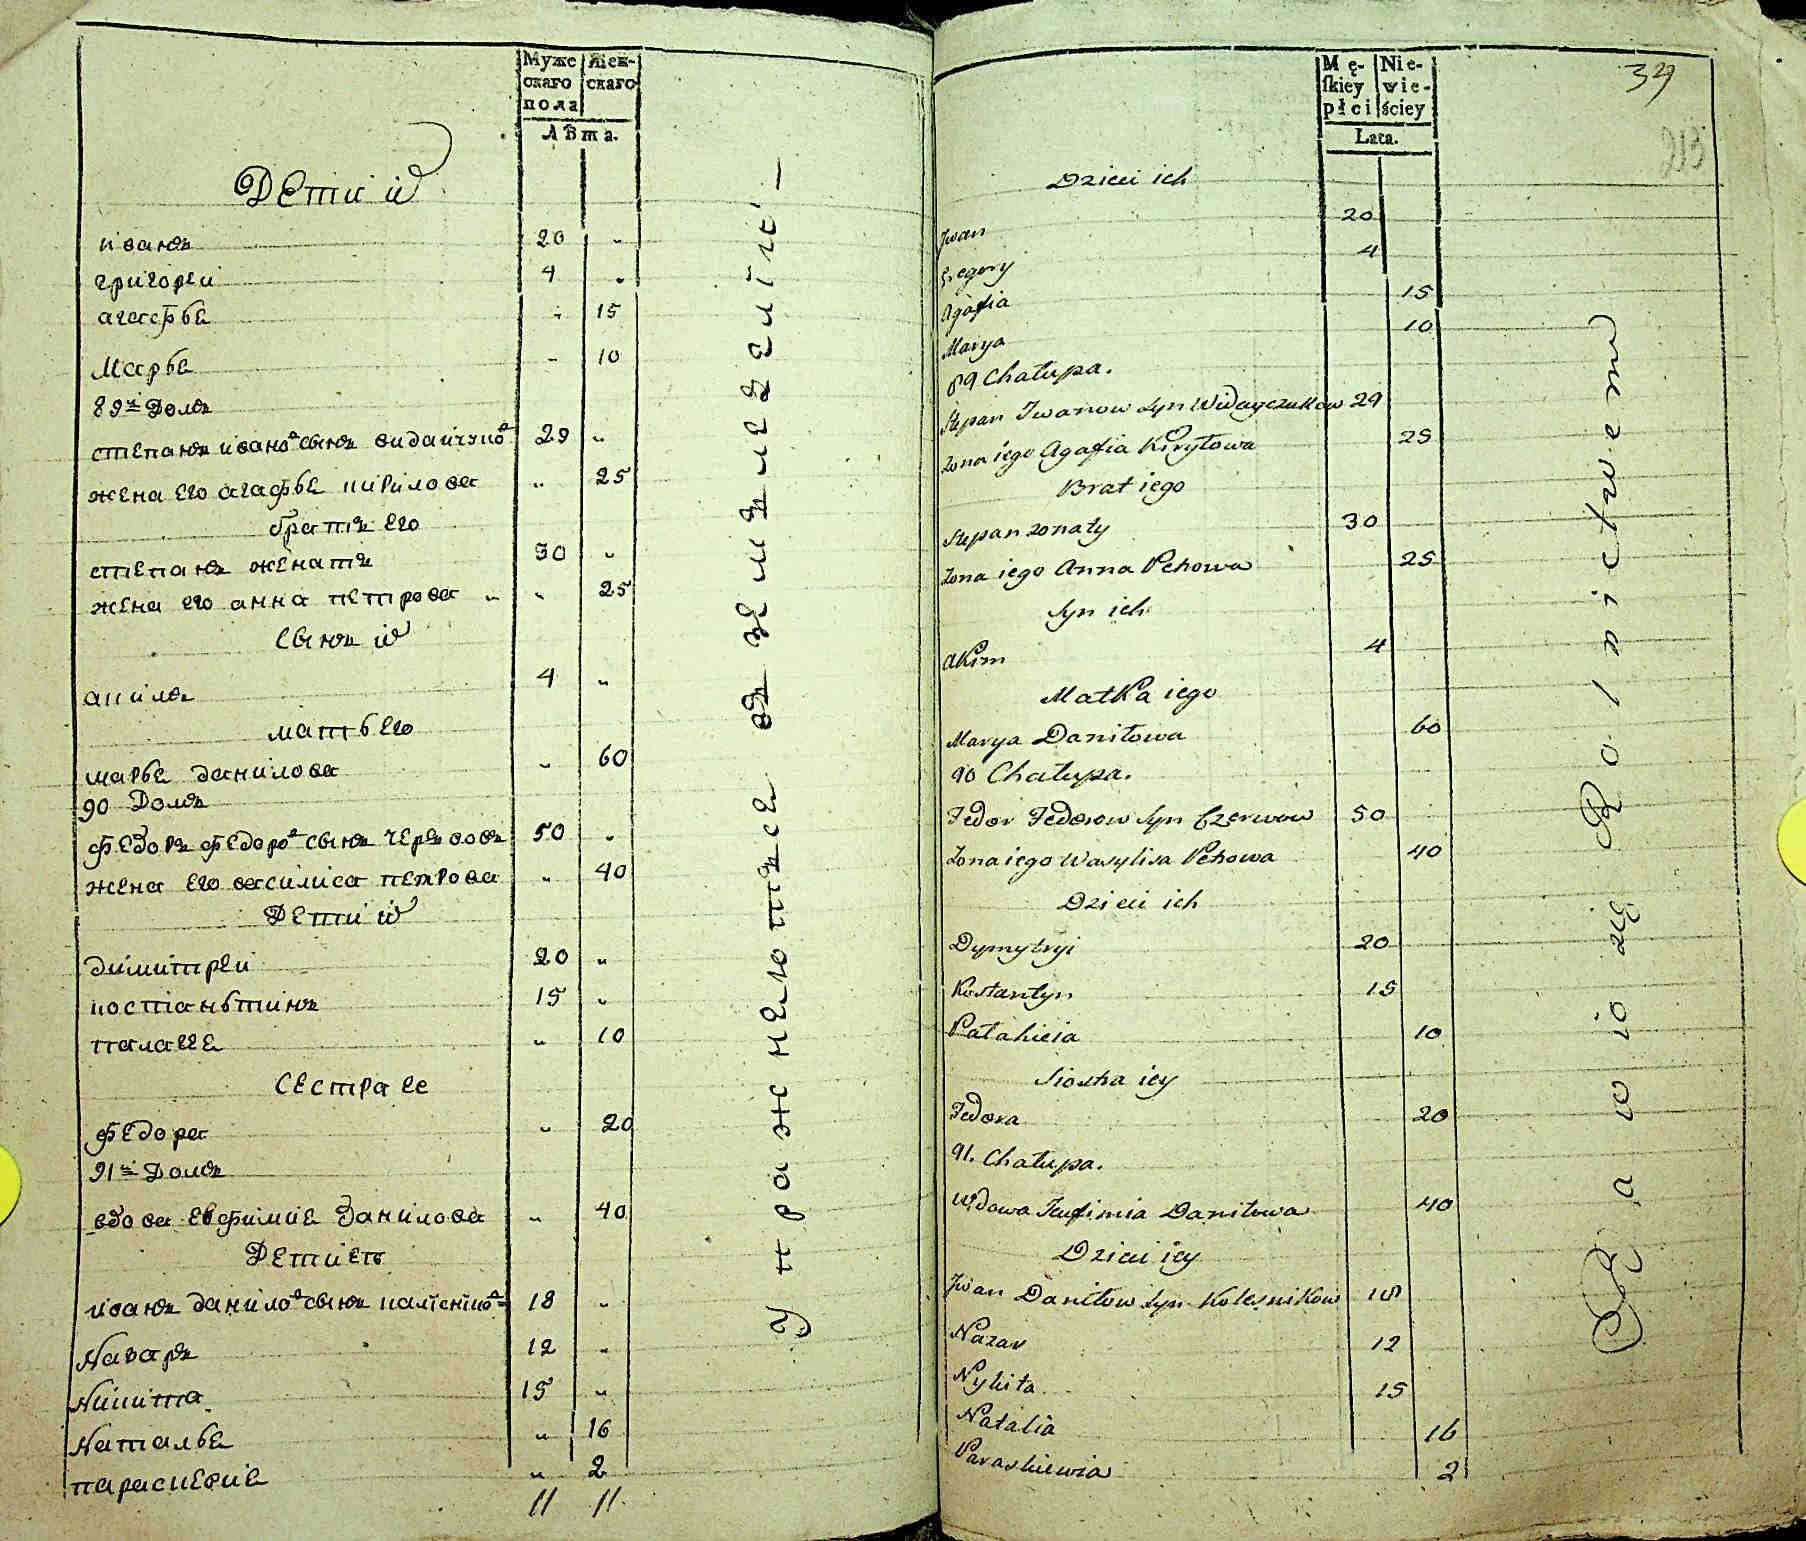 Муже Жен-
скаго скаго
пола
Лѣта.
Дети и^х
иванъ 20 „
григореи 4 „
агафье „ 15
Марье „ 10
89^й Домъ
степанъ ивано^в сынъ видайчуко^в 29 „
жена его агафье кирилова „ 25
братъ его
степанъ женатъ 30 „
жена его анна петрова „ „ 25
сынъ и^х
акимъ 4 „
мать его
марье данилова „ 60
90 Домъ
федоръ федоро^в сынъ червовъ 50 „
жена его василиса петрова „ 40
Дети и^х
димитреи 20 „
костаньтинъ 15 „
палаг҃е „ 10
сестра ее
федора „ 20
91^й Домъ
вдова евфимие данилова „ 40
Дети еъ
иванъ данило^в сынъ 18 „
Назаръ 12 „
Никита 15 „
Наталье „ 16
параскевие „ 2
11 11
упражнеютъсе въ земъледелие —
Mę- Nie-
skiey wie-
płci ściey
Lata.
39
213
Dzieci ich
Jwan 20
Gregory 4
Agafia 15
Marya 10
89 Chałupa.
Stepan Jwanow syn Widayczukow 29
Zona iego Agafia Kiryłowa 25
Brat iego
Stepan zonaty 30
Zona iego Anna Petrowa 25
Syn ich
Akim 4
Matka iego
Marya Daniłowa 60
90 Chałupa.
Fedor Fedorow syn Czerwow 50
Zona iego Wasylisa Petrowa 40
Dzieci ich
Dymytryi 20
Kostantyn 15
Pałahieia 10
Siostra iey
Fedora 20
91. Chałupa.
Wdowa Jeufimia Daniłowa 40
Dzieci iey
Jwan Daniłow syn Kolesnikow 18
Nazar 12
Nykita 15
Natalia 16
Paraskiewia 2
Bawio się Rolnictwem